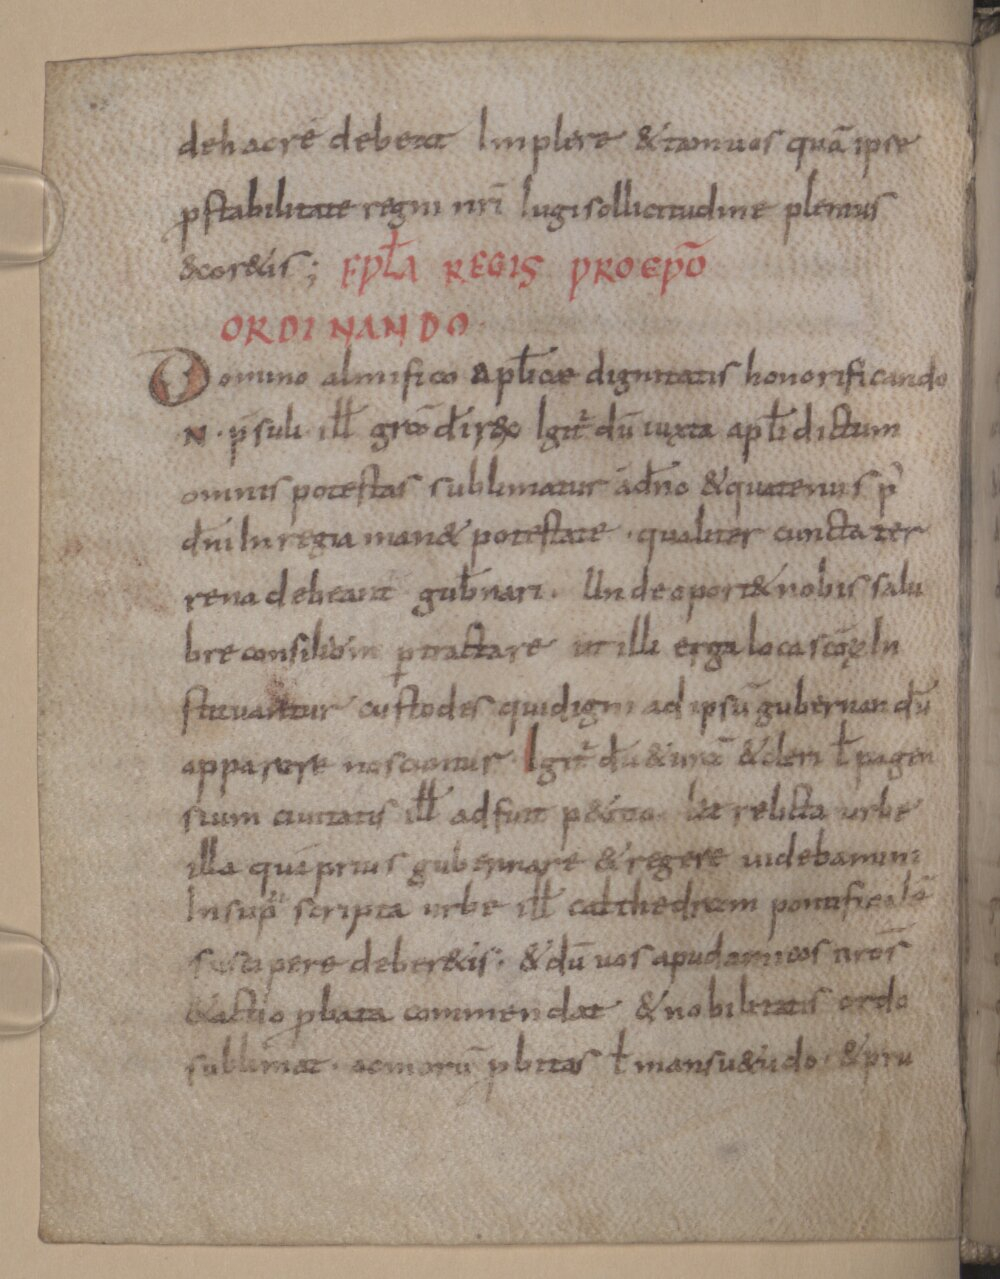 de hac rē debeat Implere & tam uos quā ipse
p stabilitate regni nrī Iugi sollicitudine plenius
& cor&is; EPŁA REGIS PRO EPŌ
ORDINANDO
Domino almifico apłicae dignitatis honorificando
N · p̄suli ił grō dī rex Igit̄ dū iuxta apłi dictum
omnis potestas sublimatur a dñο & quatenus p̄
dñi In regia man& potestate · qualiter cuncta ter
rena debeant gub̄nari. Unde oport& nobis salu
bre consilium ꝑtractare ut illi erga loca scōꝝ In
stituantur custodes qui digni ad ipsū gubernandū
apparere noscuntur. Igit̄ dū & urā & cleri ł pagen
sium ciuitatis ił ad fuit p&itio. ut relicta urbe
illa quā prius gubernare & regere uidebamini
In sup̄scripta urbe ił cathedram pontificalē
suscipere deber&is. & dū uos apud animos nrōs
& actio pbata commendat & nobilitatis ordo
sublimat. ac morū pbitas ł mansu&udo. & pru